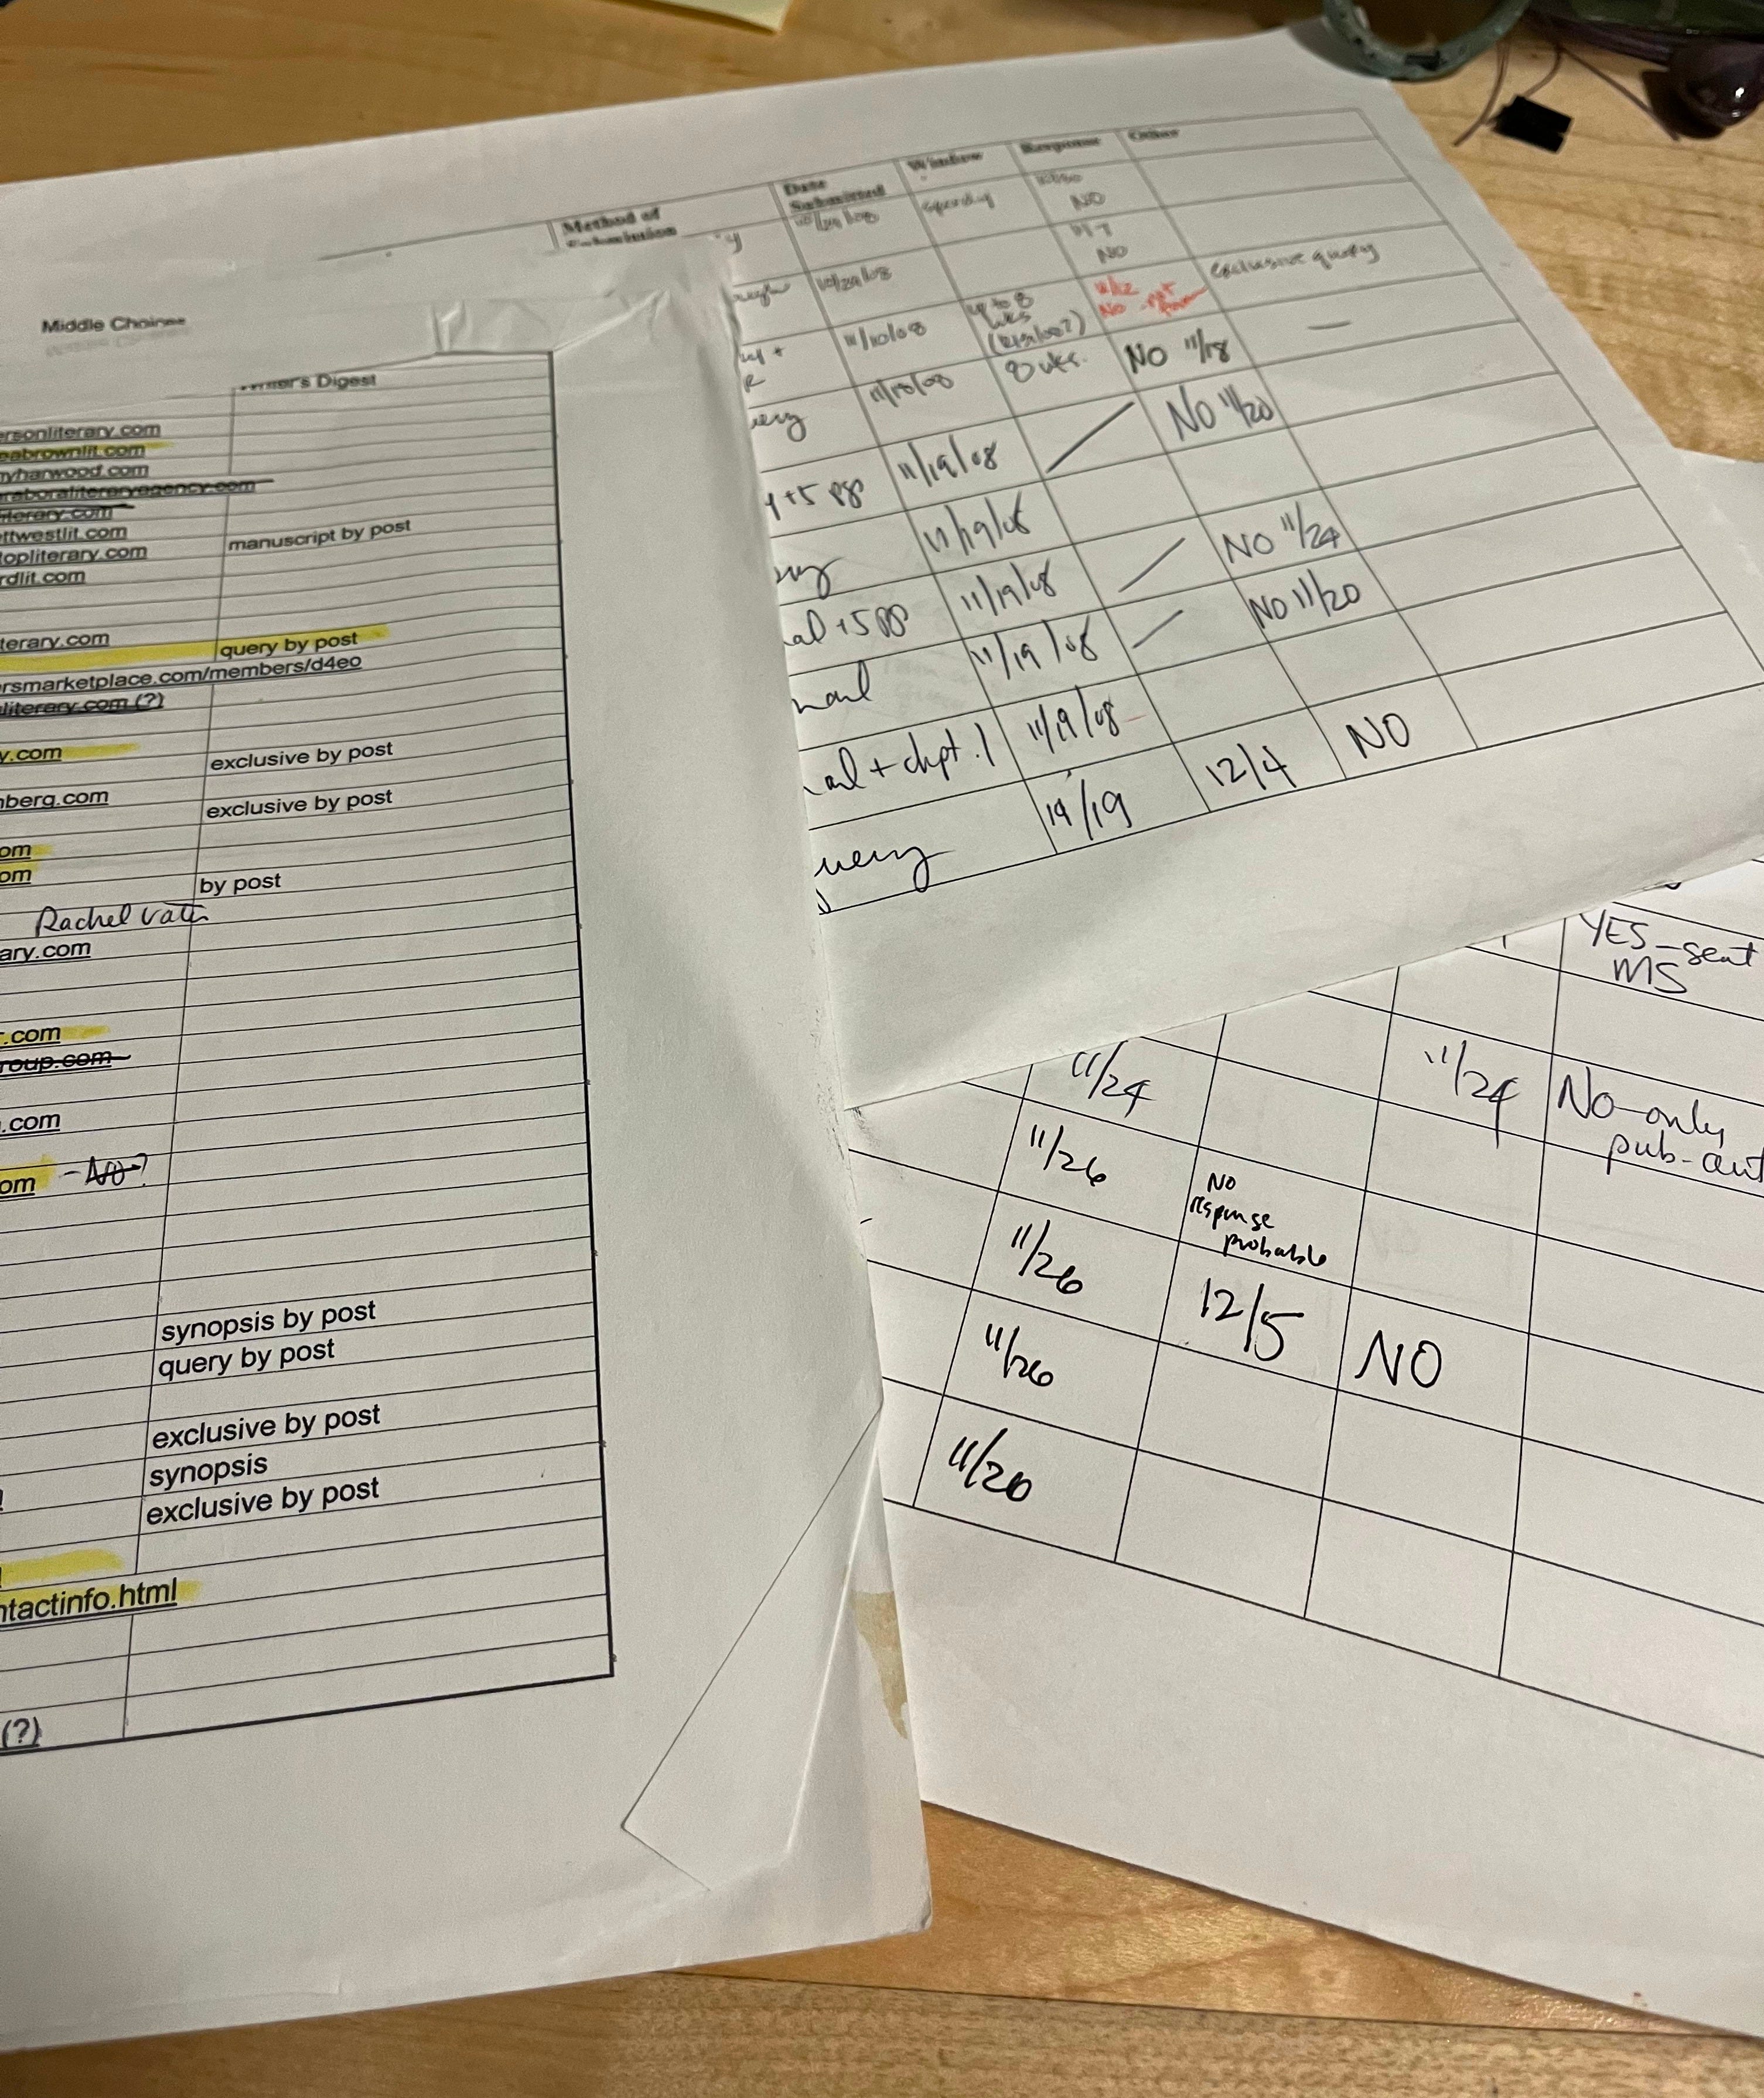 Middle Choices
Writer's Digest
ersonliterary.com
eabrownlit.com
nyharwood.com
raboraliteraryagency.com
iterary.com
ttwestlit.com
manuscript by post
topliterary.com
rdlit.com
terary.com
query by post
rsmarketplace.com/members/d4eo
literary.com (?)
y.com
exclusive by post
nberg.com
exclusive by post
om
om
by post
Rachel Vater
ary.com
r.com
roup.com
.com
om - No?
synopsis by post
query by post
exclusive by post
synopsis
exclusive by post
ntactinfo.html
(?)
Method of Submission
Date Submitted
Window
Response
Other
NO
10/29/08
11/7
NO
11/10/08
up to 8
wks
11/12
No - not
exclusive query
uery
11/18/08
8 wks.
NO 11/18
—
+5 pgs
11/19/08
NO 11/20
11/19/08
al +5 pgs
11/19/08
NO 11/24
11/19/08
NO 11/20
al + chpt. 1
11/19/08
uery
19/19
12/4
NO
YES-sent
MS
11/24
11/24
No-only
pub-aut
11/26
No
response
probable
11/26
12/5
NO
11/26
11/20